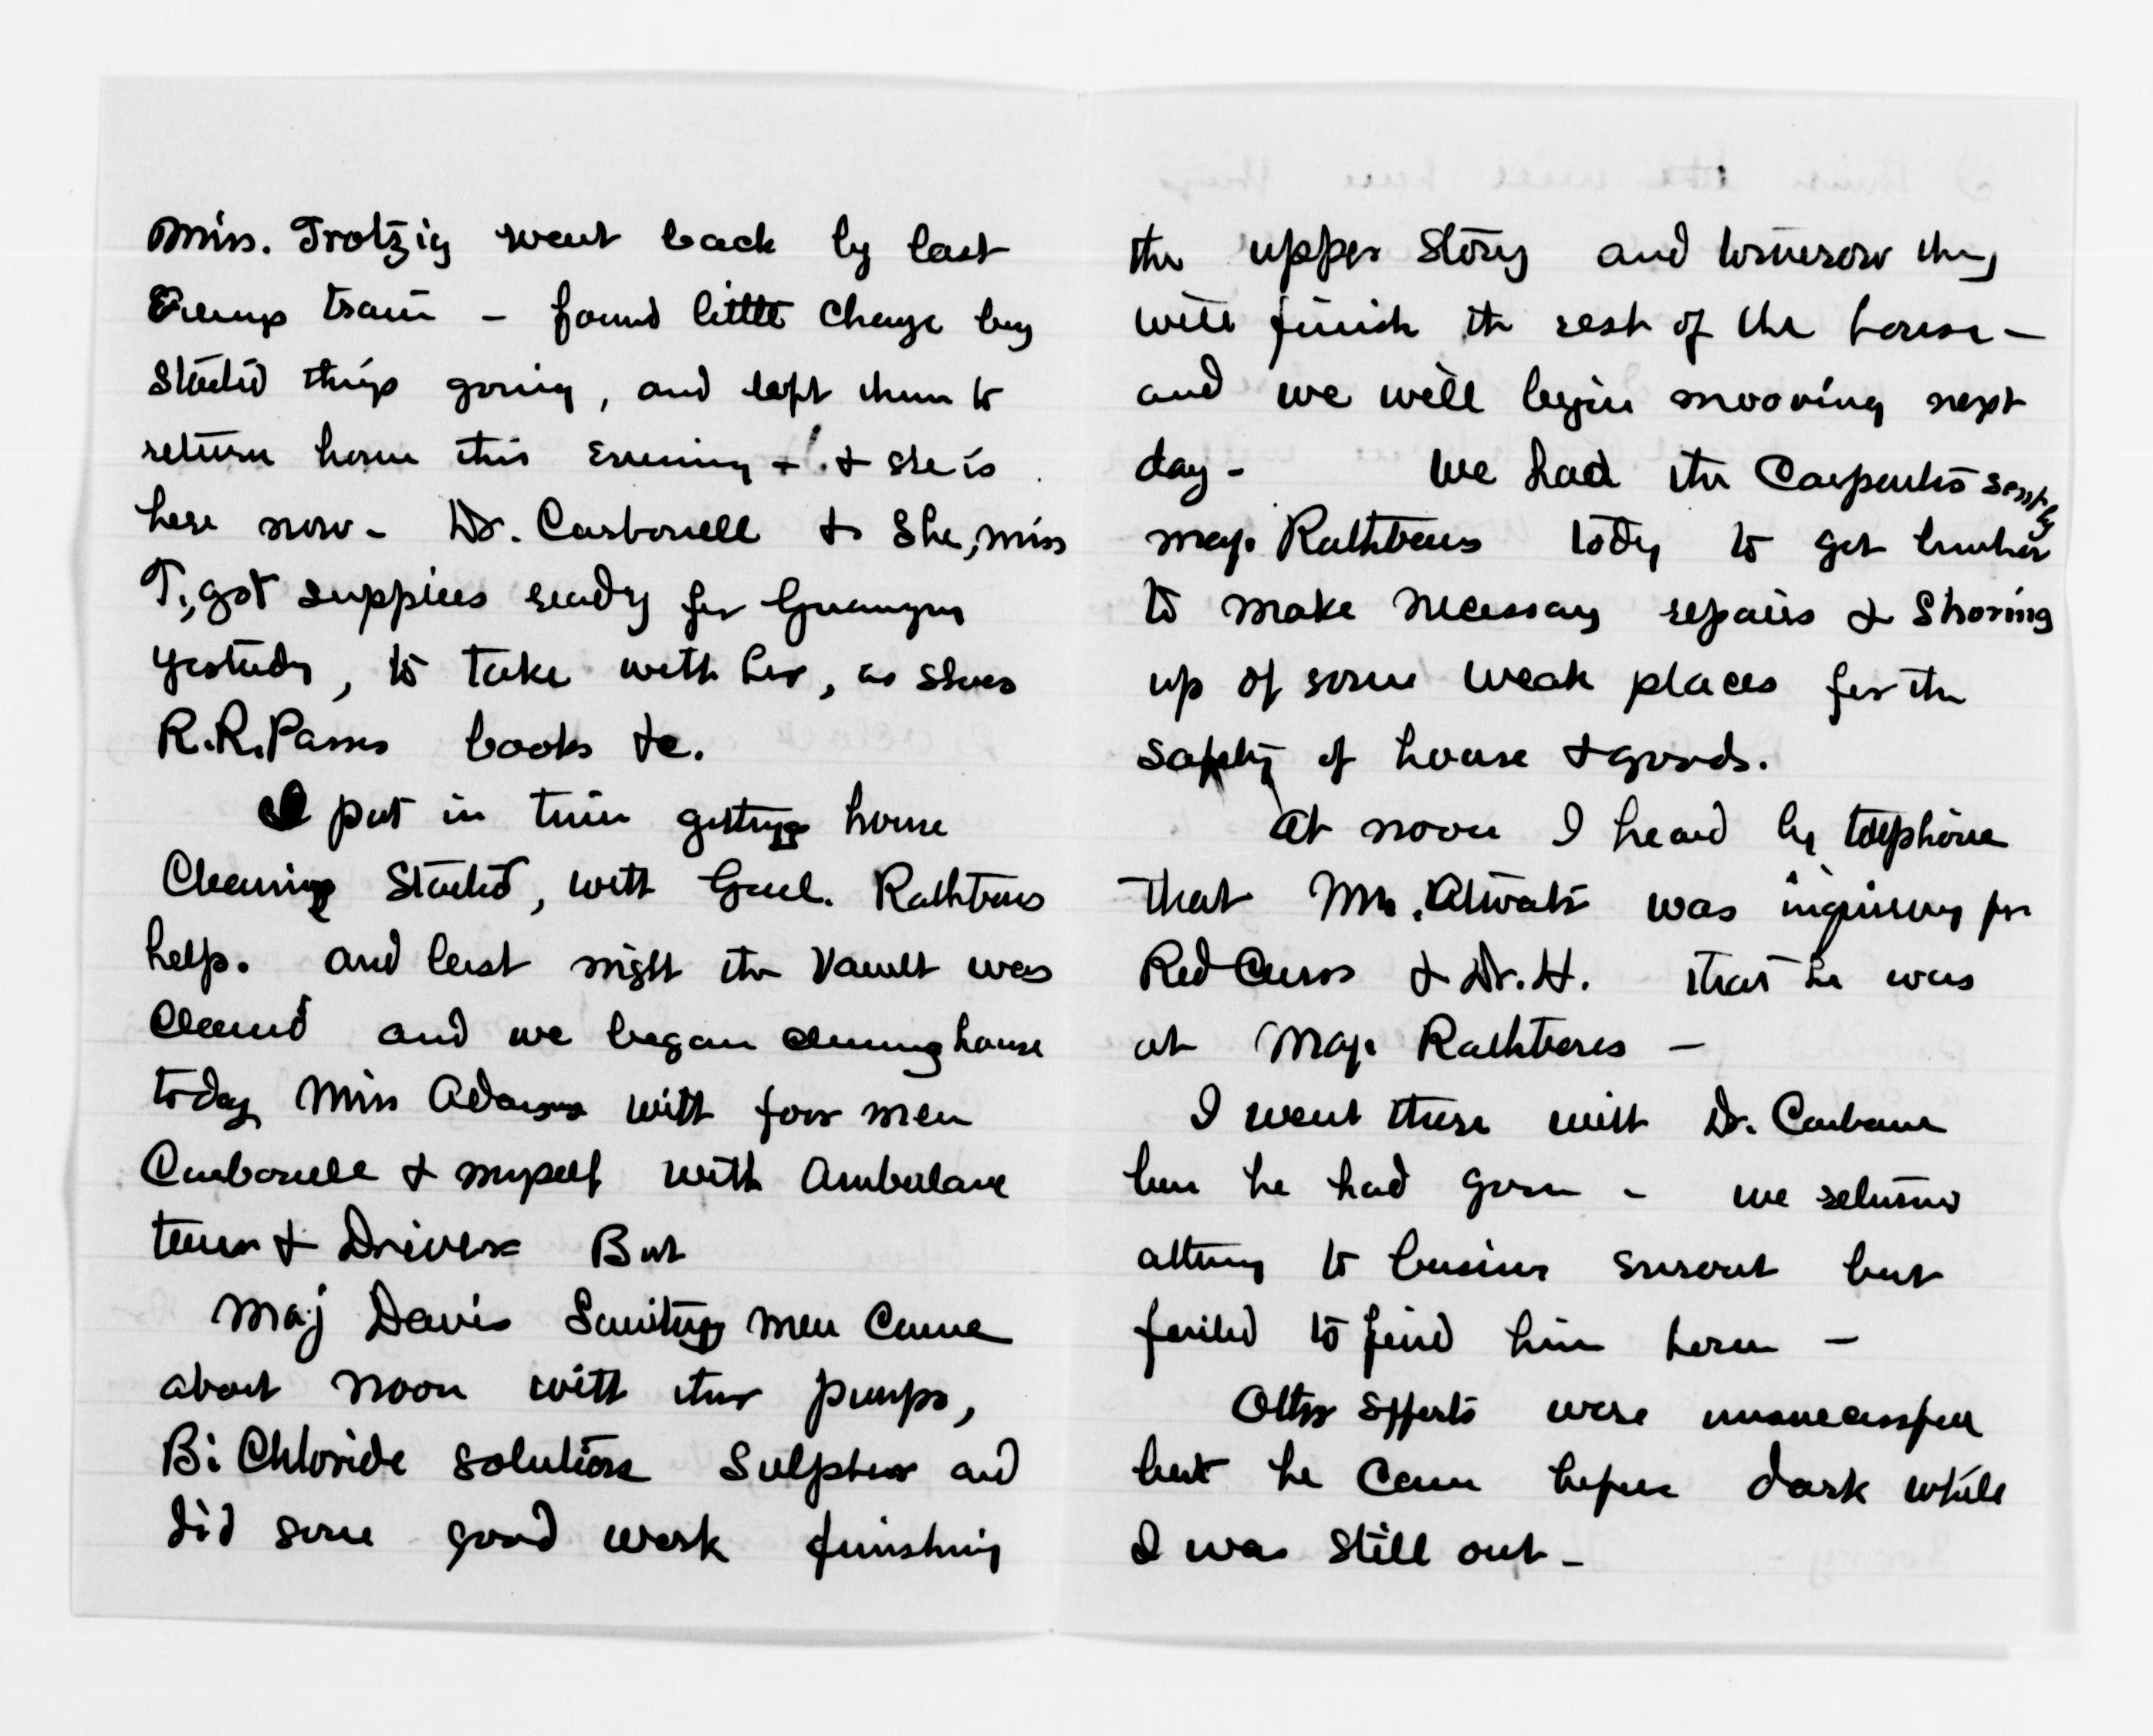 Miss. Trotzig went back by last
Evening train - found little change buy
Started things going, and left them to
return home this evening + & she is
here now - Dr. Carbonell & She, Miss
T., got supplies ready for
yesterday, to take with her, as shoes
R.R. Passes books &c.
I put in time getting house
Cleaning Started, with Genl. Rathbones
help. and last night the Vault was
Cleaned and we began cleaning house
today Miss Adams with four men
Carbonell & myself with Ambulance
team & Driver But
Maj Davis Sanitary men Came
about noon with their pumps,
Bi Chloride solution Sulphur and
did some good work finishing
the upper Story and tomorow they
will finish the rest of the house -
and we will begin mooving next
day - We had the Carpenters sent by
Maj. Rathbones today to get lumber
to make necessary repairs & Shoring
up of some weak places for the
safety of house & goods.
At noon I heard by telephone
that Mr. Atwater was inquiring for
Red Cross & Dr. H. that he was
at Maj. Rathbones -
I went there with Dr. Carbonell
but he had gone - we returned
attending to business enrout but
failed to find him here -
Other efforts were unsuccessful
but he came before dark while
I was still out -